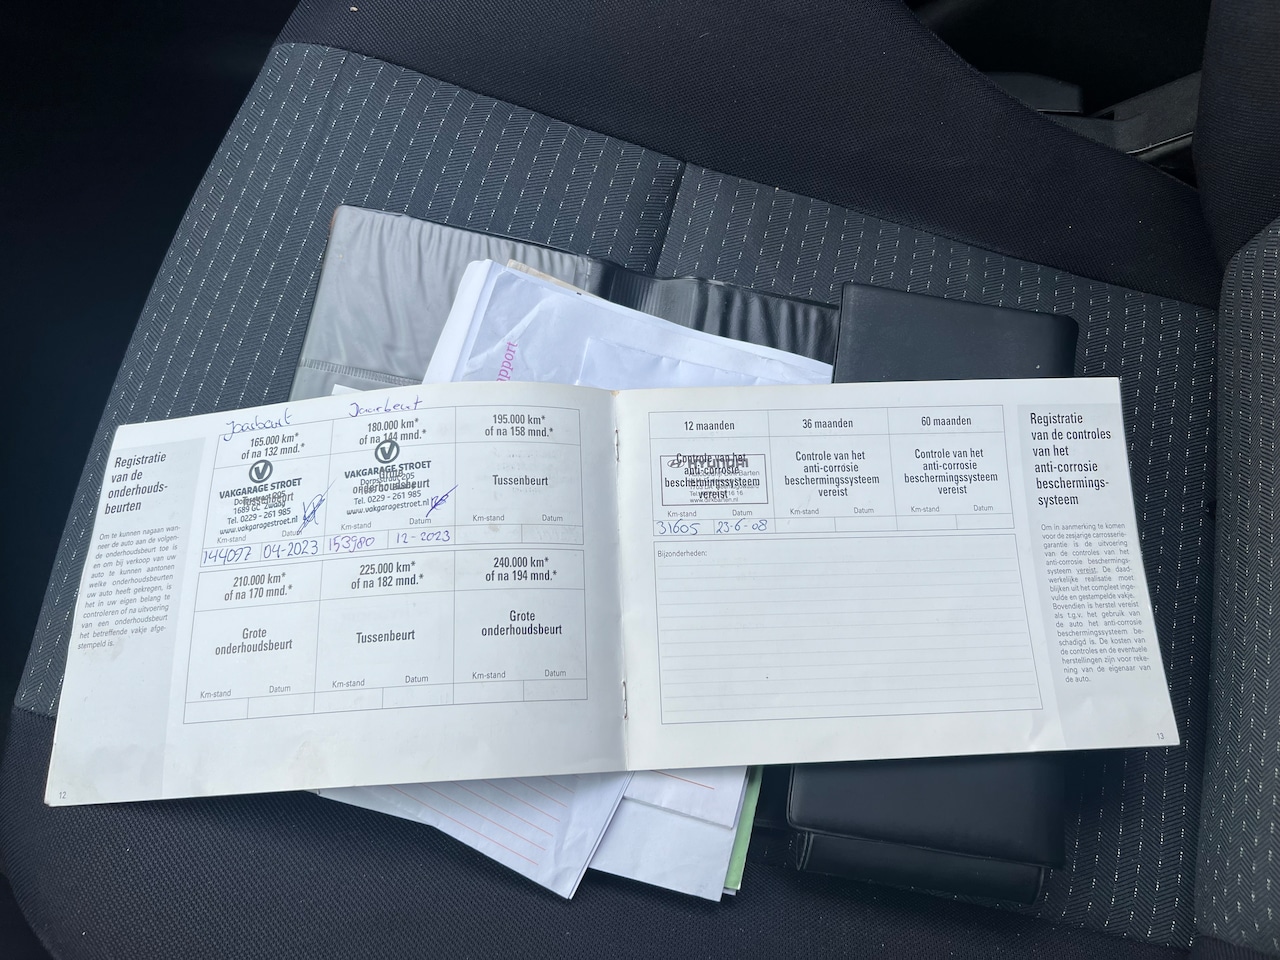 apport
Jaarbeurt
Jaarbeurt
Registratie
van de
onderhouds-
beurten
Om te kunnen nagaan wan-
neer de auto aan de volgen-
de onderhoudsbeurt toe is
en om bij verkoop van uw
auto te kunnen aantonen
welke onderhoudsbeurten
uw auto heeft gekregen, is
het in uw eigen belang te
controleren of na uitvoering
van een onderhoudsbeurt
het betreffende vakje afge-
stempeld is.
165.000 km*
of na 132 mnd.*
VAKGARAGE STROET
Dorpsstraat 205
1689 GC Zwaag
Tel. 0229 - 261 985
www.vakgaragestroet.nl
Datum
144097 04-2023
180.000 km*
of na 144 mnd.*
Grote
onderhoudsbeurt
VAKGARAGE STROET
Dorpsstraat 205
Tel. 0229 - 261 985
www.vakgaragestroet.nl
Km-stand Datum
153980 12-2023
195.000 km*
of na 158 mnd.*
Tussenbeurt
Km-stand Datum
210.000 km*
of na 170 mnd.*
Grote
onderhoudsbeurt
Km-stand Datum
225.000 km*
of na 182 mnd.*
Tussenbeurt
Km-stand Datum
240.000 km*
of na 194 mnd.*
Grote
onderhoudsbeurt
Km-stand Datum
12
12 maanden
Controle van het
anti-corrosie
beschermingssysteem
vereist
HYUNDAI
Km-stand Datum
31605 23-6-08
36 maanden
Controle van het
anti-corrosie
beschermingssysteem
vereist
Km-stand Datum
60 maanden
Controle van het
anti-corrosie
beschermingssysteem
vereist
Km-stand Datum
Bijzonderheden:
Registratie
van de controles
van het
anti-corrosie
beschermings-
systeem
Om in aanmerking te komen
voor de zesjarige carrosserie-
garantie is de uitvoering
van de controles van het
anti-corrosie beschermings-
systeem vereist. De daad-
werkelijke realisatie moet
blijken uit het compleet inge-
vulde en gestempelde vakje.
Bovendien is herstel vereist
als t.g.v. het gebruik van
de auto het anti-corrosie
beschermingssysteem be-
schadigd is. De kosten van
de controles en de eventuele
herstellingen zijn voor reke-
ning van de eigenaar van
de auto.
13